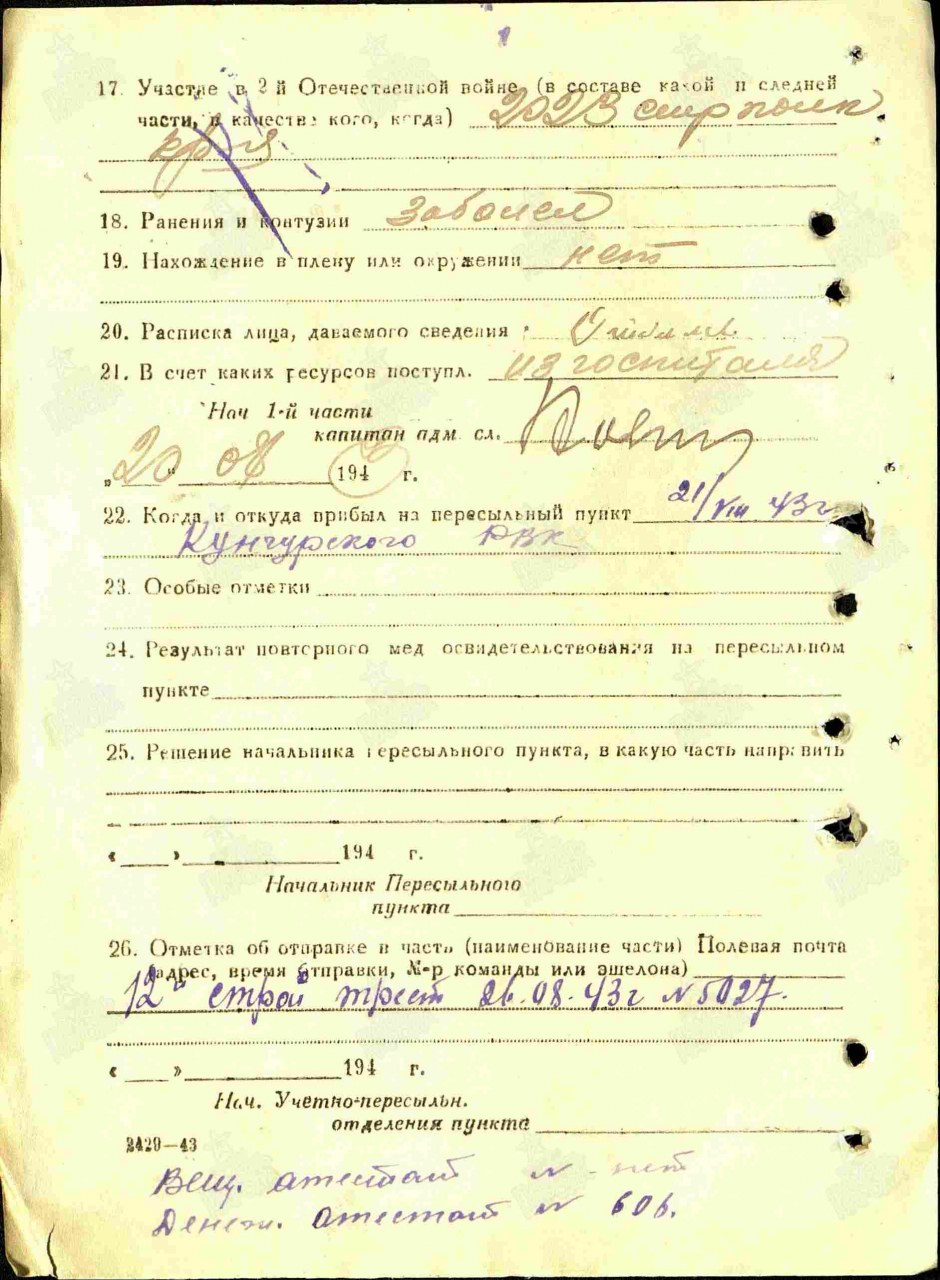 17. Участие в 2 й Отечественной войне (в составе какой п следней
части, в качестве кого, когда) 2023 стр полк
кр-я
18. Ранения и контузии заболел
19. Нахождение в плену или окружении нет
20. Расписка лица, даваемого сведения
21. В счет каких ресурсов поступл. из госпиталя
Нач 1-й части
капитан адм. сл.
„20" 08 194 г.
22. Когда и откуда прибыл на пересыльный пункт 21/VIII 43 г
Кунгурского РВК
23. Особые отметки
24. Результат повторного мед освидетельствования на пересыльном
пункте
25. Решение начальника пересыльного пункта, в какую часть направить
«___» 194 г.
Начальник Пересыльного
пункта
26. Отметка об отправке в часть (наименование части) Полевая почта
(адрес, время отправки, №-р команды или эшелона)
12й строй трест 26.08.43 г N 5027.
«___» 194 г.
Нач. Учётно-пересыльн.
отделения пункта
2420—43
Вещ. атестат N - нет
Денежн. атестат N 606.